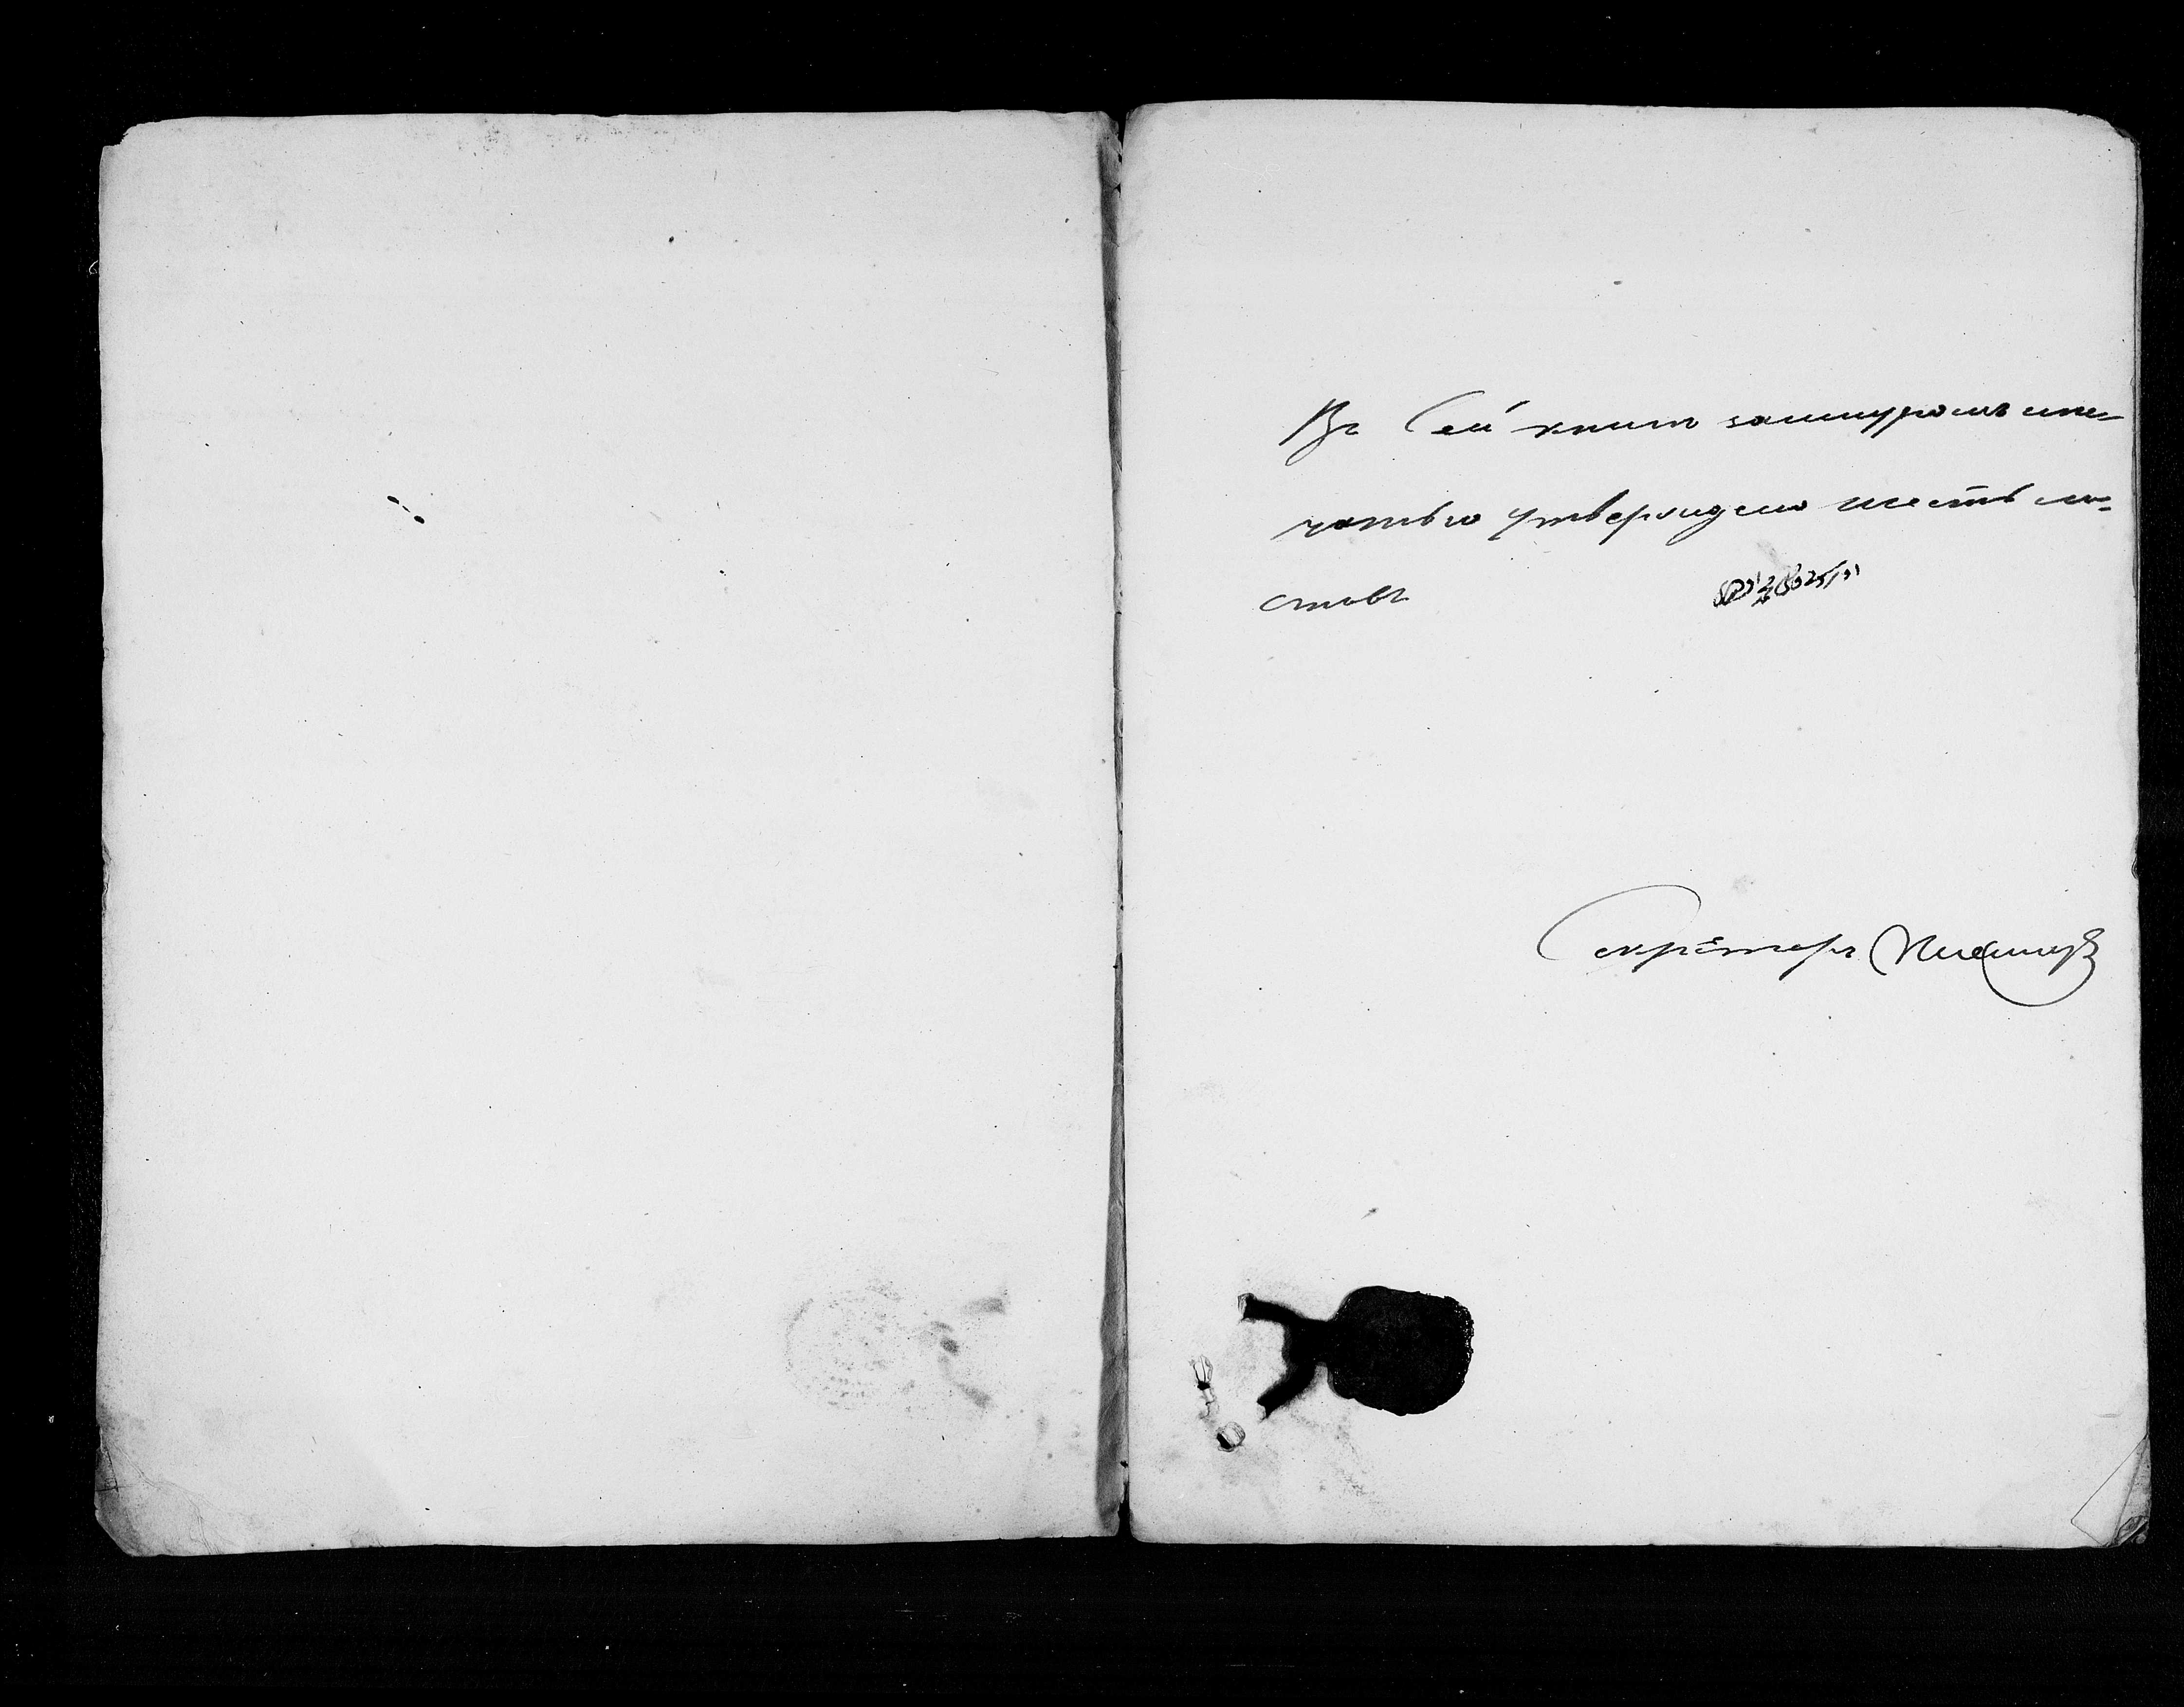 Въ Сей книгѣ зашнуромъ и пе-
чатью утверждено шесть ли-
стовъ
Секретарь